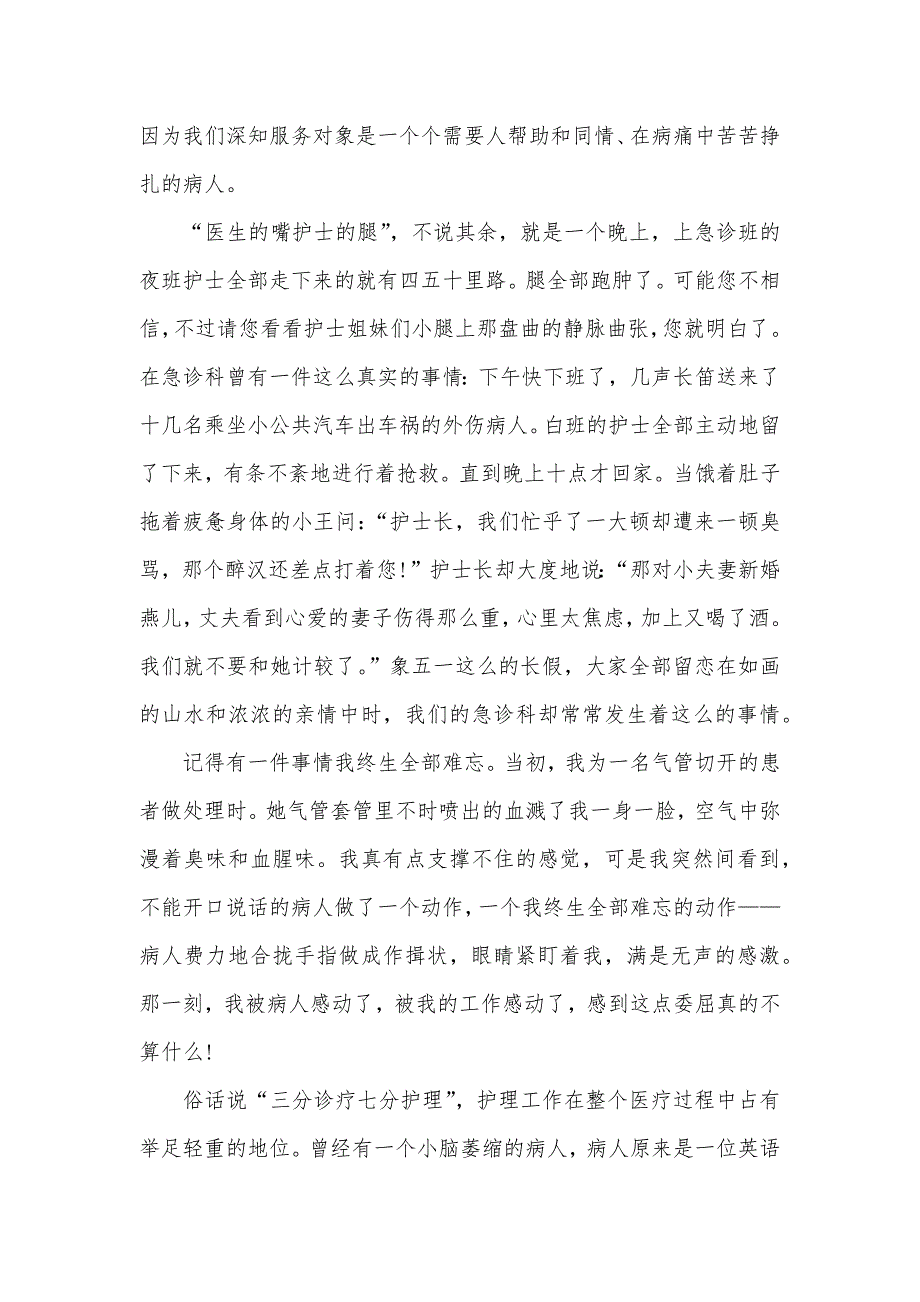 因为我们深知服务对象是一个个需要人帮助和同情、在病痛中苦苦挣
扎的病人。
“医生的嘴护士的腿”，不说其余，就是一个晚上，上急诊班的
夜班护士全部走下来的就有四五十里路。腿全部跑肿了。可能您不相
信，不过请您看看护士姐妹们小腿上那盘曲的静脉曲张，您就明白了。
在急诊科曾有一件这么真实的事情：下午快下班了，几声长笛送来了
十几名乘坐小公共汽车出车祸的外伤病人。白班的护士全部主动地留
了下来，有条不紊地进行着抢救。直到晚上十点才回家。当饿着肚子
拖着疲惫身体的小王问：“护士长，我们忙乎了一大顿却遭来一顿臭
骂，那个醉汉还差点打着您！”护士长却大度地说：“那对小夫妻新婚
燕儿，丈夫看到心爱的妻子伤得那么重，心里太焦虑，加上又喝了酒。
我们就不要和她计较了。”象五一这么的长假，大家全部留恋在如画
的山水和浓浓的亲情中时，我们的急诊科却常常发生着这么的事情。
记得有一件事情我终生全部难忘。当初，我为一名气管切开的患
者做处理时。她气管套管里不时喷出的血溅了我一身一脸，空气中弥
漫着臭味和血腥味。我真有点支撑不住的感觉，可是我突然间看到，
不能开口说话的病人做了一个动作，一个我终生全部难忘的动作——
病人费力地合拢手指做成作揖状，眼睛紧盯着我，满是无声的感激。
那一刻，我被病人感动了，被我的工作感动了，感到这点委屈真的不
算什么！
俗话说“三分诊疗七分护理”，护理工作在整个医疗过程中占有
举足轻重的地位。曾经有一个小脑萎缩的病人，病人原来是一位英语